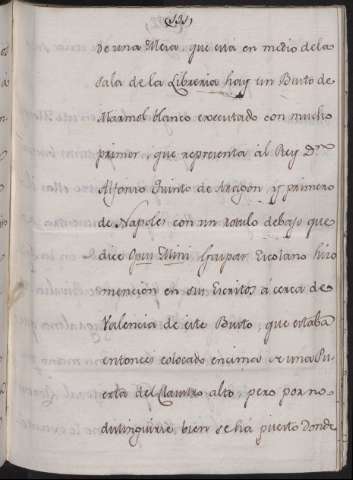 131,
de una Mesa, que está en medio de la
sala de la Libreria hay un Busto de
Marmol blanco executado con mucho
primor, que representa al Rey Dⁿ.
Alfonso Quinto de Aragon, y primero
de Napoles con un rotulo debajo que
dice Opus Mini. Gaspar Escolano hizo
mencion en sus Escritos á cerca de
Valencia de este Busto, que estaba
entonces colocado encima de una Pu-
erta del Claustro alto, pero por no
distinguirse bien se há puesto donde